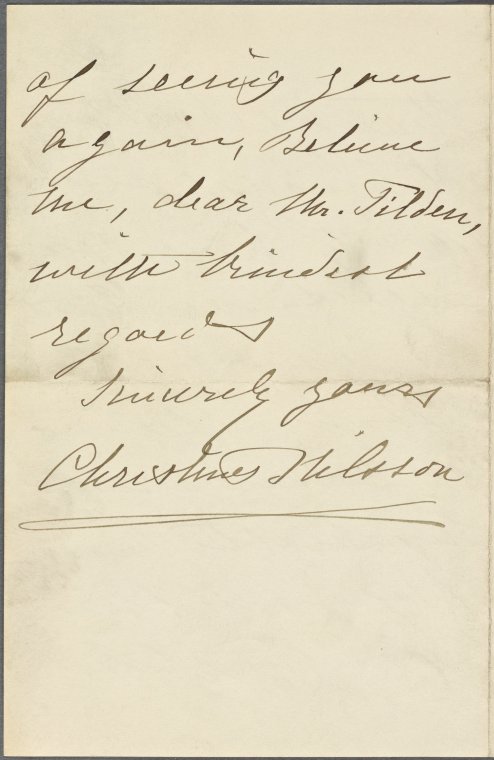 of seeing you
again, Believe
me, dear Mr. Tilden,
with kindest
regards
Sincerely yours
Christine Nilsson